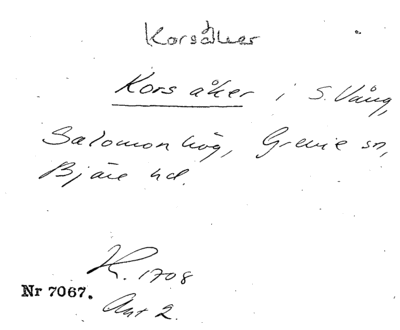 Korsåker
Kors åker i S. Vång,
Salomonhög, Grevie sn,
Bjäre hd.
K. 1708
Nr 7067.
Akt 2.